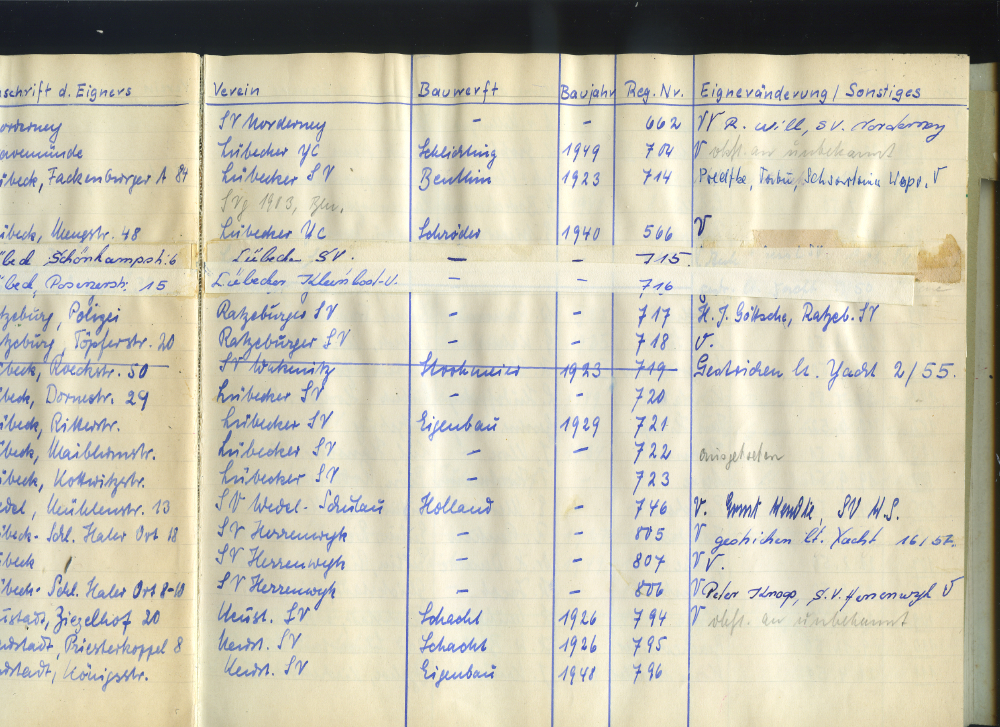 schrift d. Eigners Verein Bauwerft Baujahr Reg. Nr. Eignerveränderung / Sonstiges
orderney SV Norderney – – 662 VV R. Will, SV. Norderney
avemünde Lübecker YC Schlichting 1949 704 V obst. an unbekannt
übeck, Fackenburger A 84 Lübecker SV Benthin 1923 714 V
SVg 1903, Bln.
übeck, Mengstr. 48 Lübecker YC Schröder 1940 566 V
übeck Schönkampstr. 6 Lübecker SV. – – 715
übeck, Posenerstr. 15 Lübecker Kleinboot-V. – 716
tzeburg, Polizei Ratzeburger SV – – 717 H. J. Göttsche, Ratzeb. SV
tzeburg, Töpferstr. 20 Ratzeburger SV – – 718 V.
übeck, Roeckstr. 50 SV Wakenitz Stockmeier 1923 719 Gestrichen lt. Yacht 2/55.
übeck, Dornestr. 29 Lübecker SV – – 720
übeck, Ritterstr. Lübecker SV Eigenbau 1929 721
übeck, Maiblumstr. Lübecker SV – – 722 ausgetreten
übeck, Kottwitzstr. Lübecker SV – – 723
edel, Mühlenstr. 13 SV Wedel-Schulau Holland – 746 V. SV W.S.
übeck-Schl. Haler Ort 18 SV Herrenwyk – – 805 V gestrichen lt. Yacht 16/57.
übeck SV Herrenwyk – – 807 V V.
übeck-Schl. Haler Ort 8-10 SV Herrenwyk – – 806 V Peter Knoop, S.V. Herrenwyk V
eustadt, Ziegelhof 20 Neust. SV Schacht 1926 794 V obst. an unbekannt
eustadt, Priesterkoppel 8 Neust. SV Schacht 1926 795
eustadt, Königsstr. Neust. SV Eigenbau 1948 796